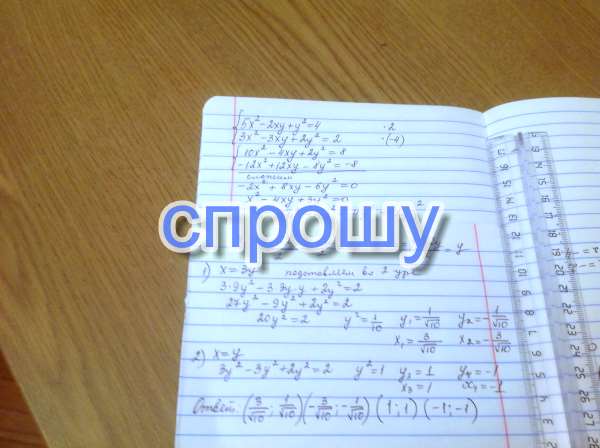 5x² - 2xy + y² = 4 ·2
3x² - 3xy + 2y² = 2 ·(-4)
10x² - 4xy + 2y² = 8
-12x² + 12xy - 8y² = -8
сложим
-2x² + 8xy - 6y² = 0
x² - 4xy + 3y² = 0
спрошу
= y
1) x = 3y подставляем во 2 ур
3·9y² - 3·3y·y + 2y² = 2
27y² - 9y² + 2y² = 2
20y² = 2 y² = 1/10 y₁ = 1/√10 y₂ = -1/√10
x₁ = 3/√10 x₂ = -3/√10
2) x = y
3y² - 3y² + 2y² = 2 y² = 1 y₃ = 1 y₄ = -1
x₃ = 1 x₄ = -1
Ответ: (3/√10; 1/√10) (-3/√10; -1/√10) (1; 1) (-1; -1)